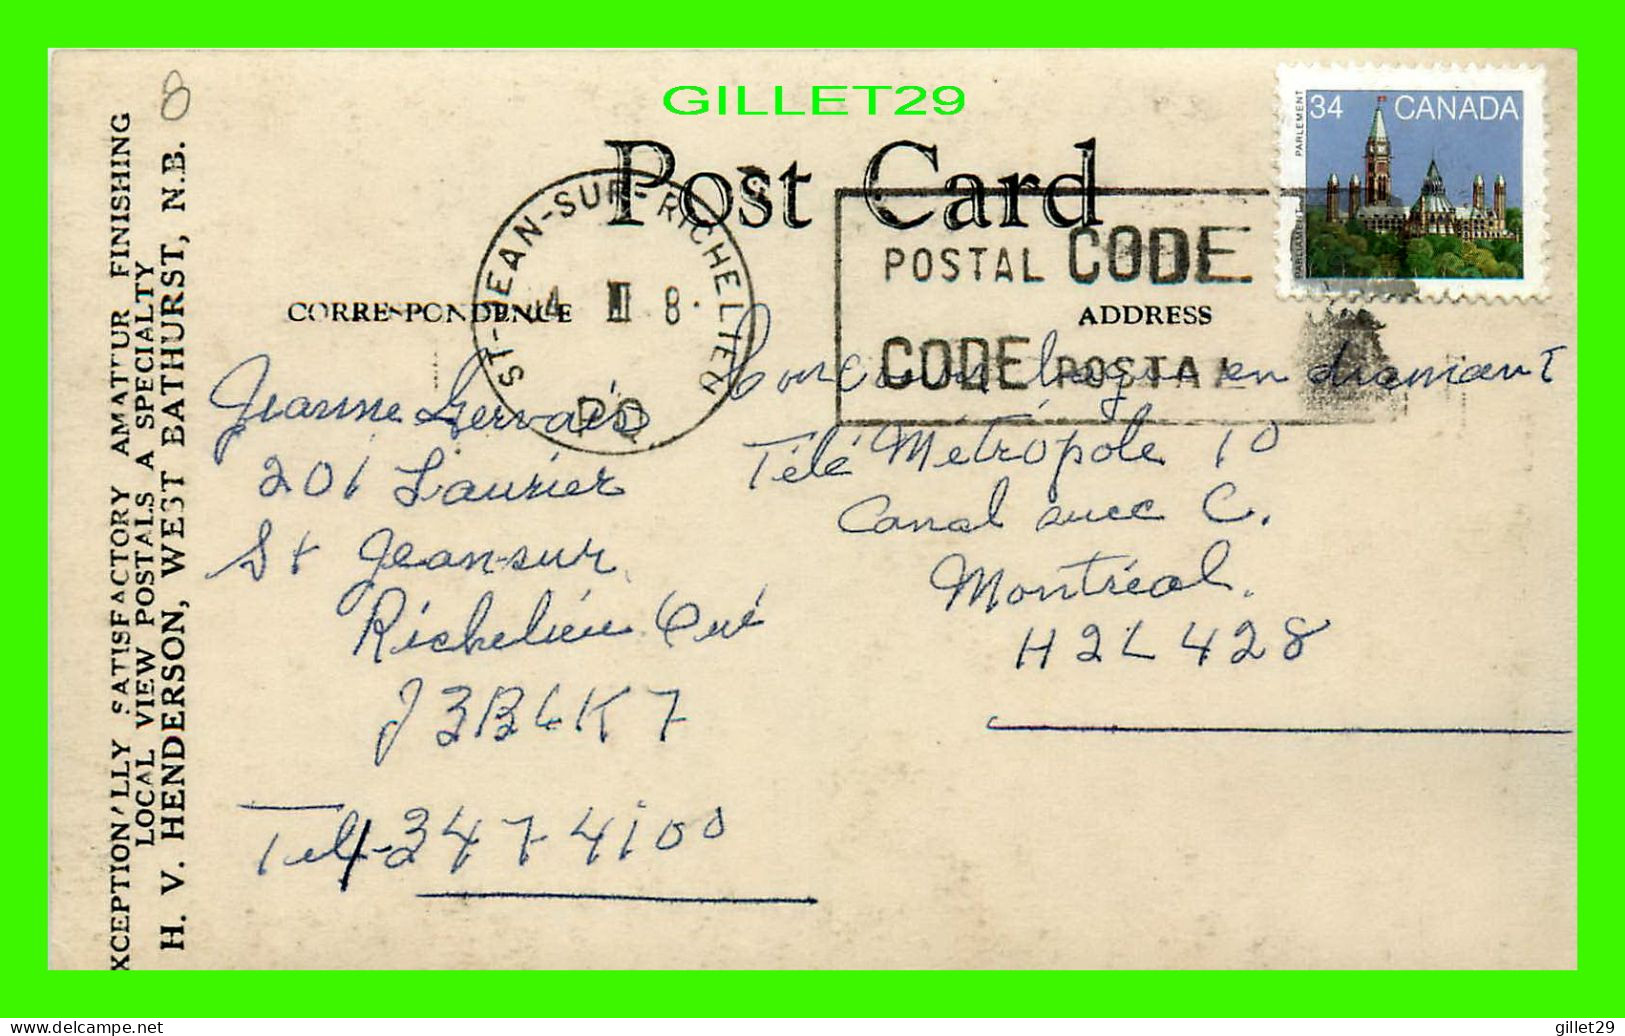 GILLET29
Post Card
34 CANADA
PARLEMENT
PARLIAMENT
ST-JEAN-SUR-RICHELIEU
PQ
POSTAL CODE
CODE POSTAL
CORRESPONDENCE
ADDRESS
8
XCEPTION'LLY SATISFACTORY AMAT'UR FINISHING
LOCAL VIEW POSTALS A SPECIALTY
H. V. HENDERSON, WEST BATHURST, N.B.
Jeanne Gervais
201 Laurier
St Jean-sur
Richelieu Qué
J3B6K7
Tel-347-4100
Concours bague en diamant
Télé Métropole 10
Canal avec C.
Montréal.
H2L 428
delcampe.net
gillet29